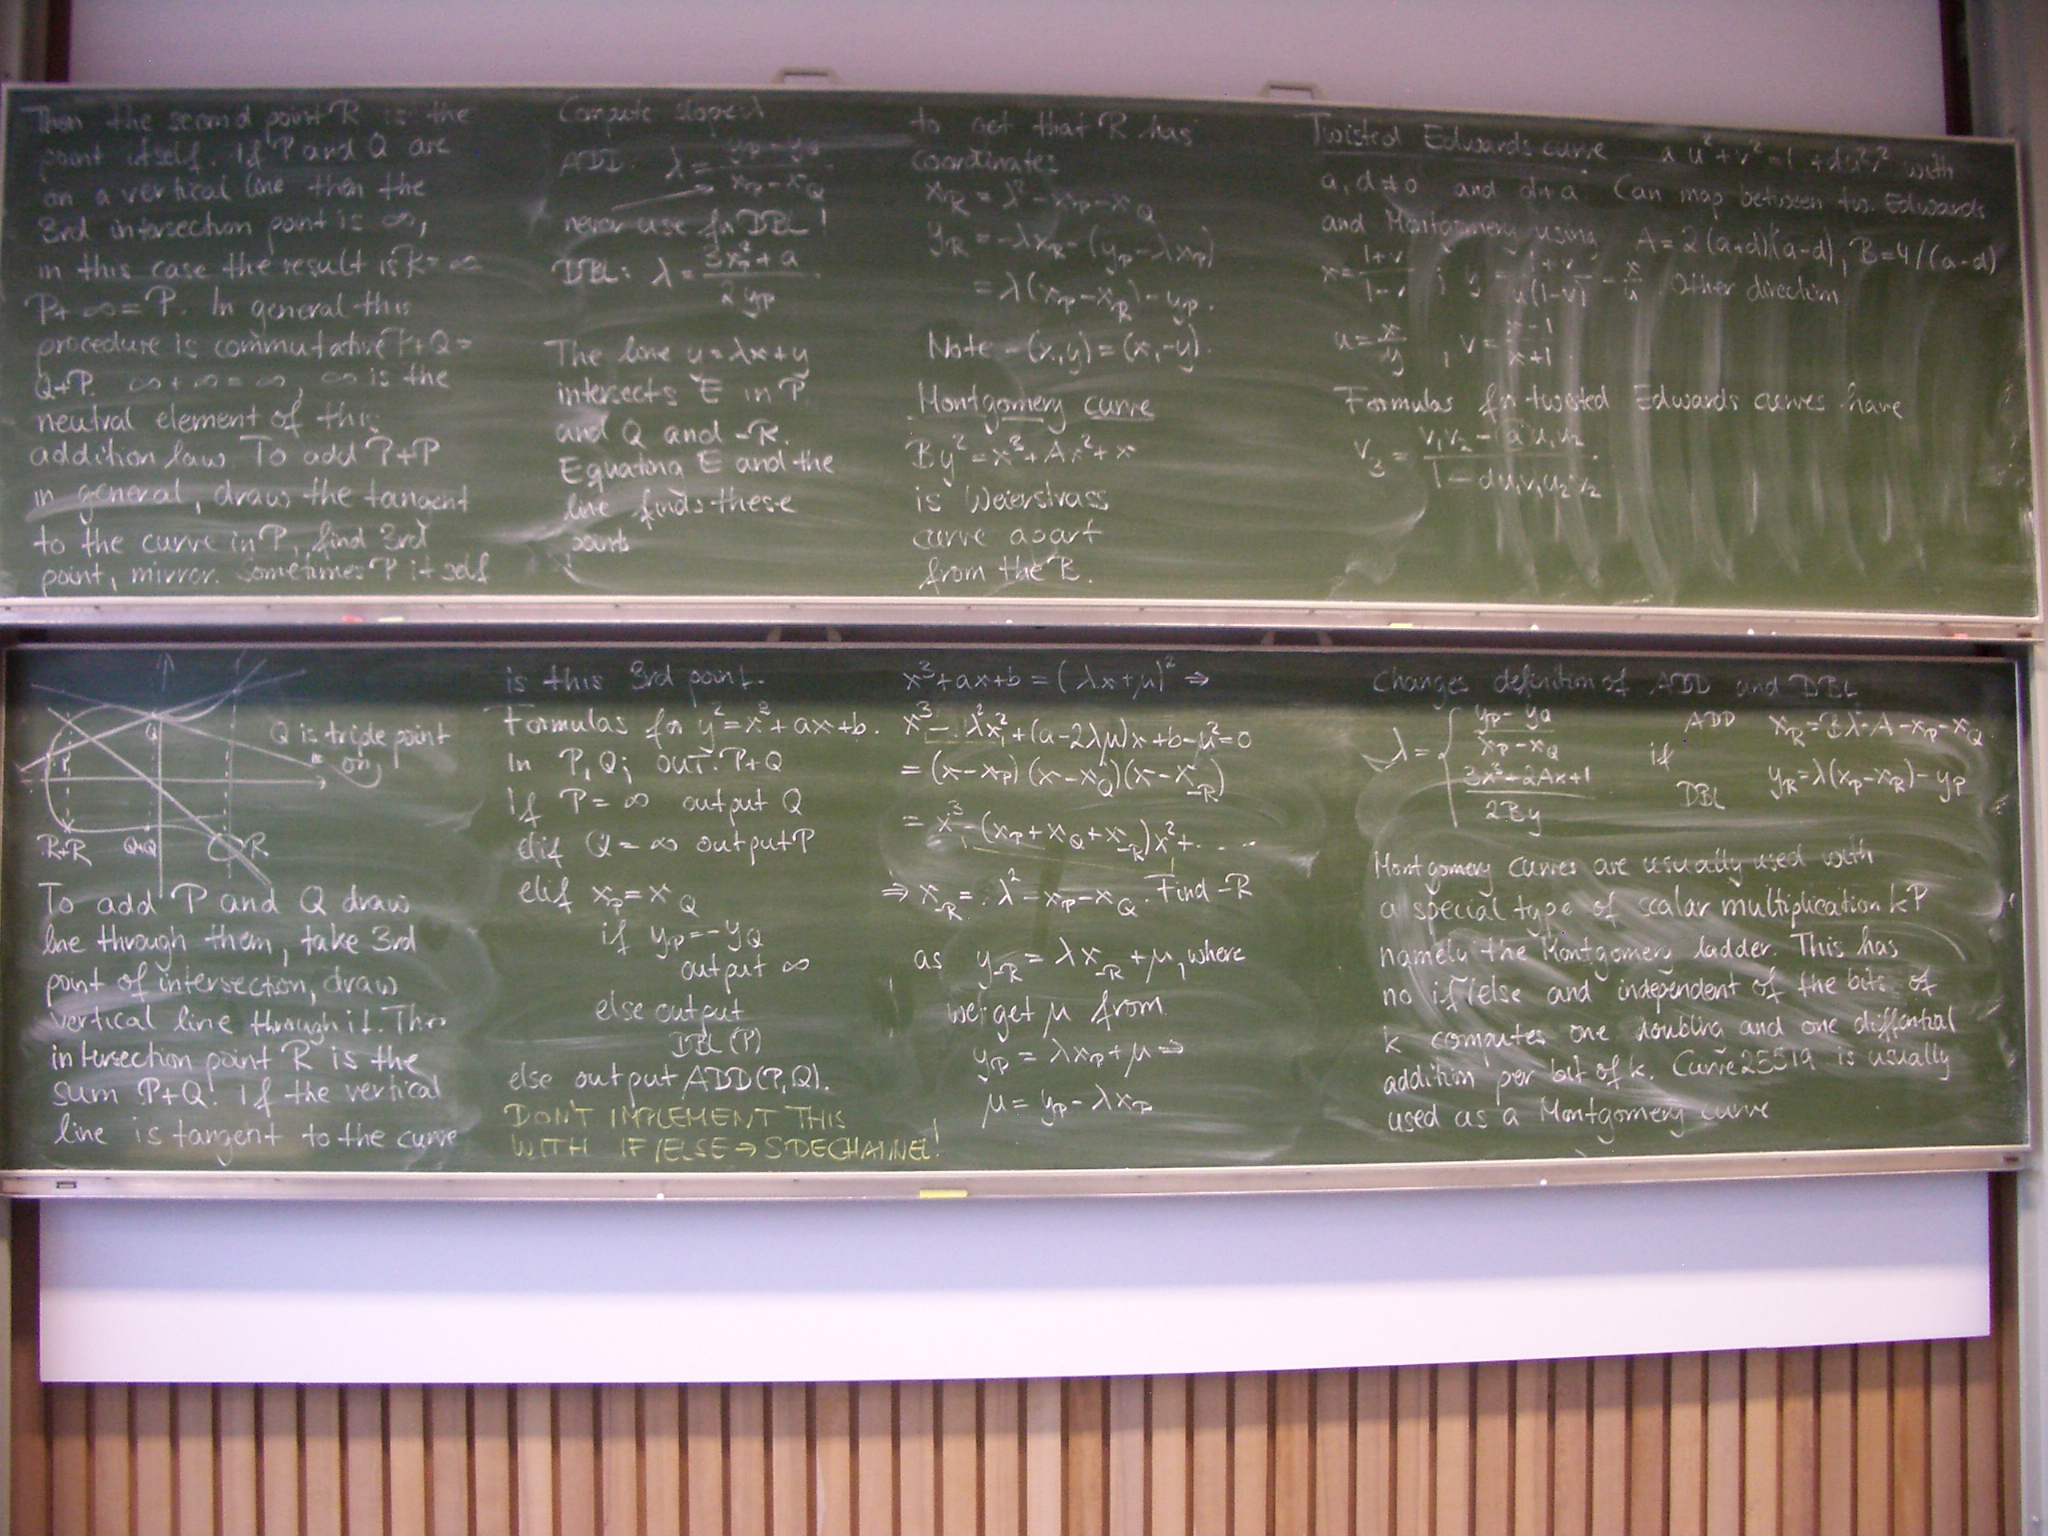 Then the second point R is the
point itself. If P and Q are
on a vertical line then the
3rd intersection point is ∞,
in this case the result is R=∞
P+∞=P. In general this
procedure is commutative P+Q=
Q+P. ∞+∞=∞, ∞ is the
neutral element of this
addition law. To add P+P
in general, draw the tangent
to the curve in P, find 3rd
point, mirror. Sometimes P itself
Compute slope λ
ADD: λ = (y_P - y_Q)/(x_P - x_Q)
never use for DBL!
DBL: λ = (3x_P^2 + a)/(2y_P)
The line y=λx+y
intersects E in P
and Q and -R.
Equating E and the
line finds these
points
to get that R has
coordinates
x_R = λ^2 - x_P - x_Q
y_R = -λx_R - (y_P - λx_P)
= λ(x_P - x_R) - y_P.
Note -(x,y) = (x,-y).
Montgomery curve
By^2 = x^3 + Ax^2 + x
is Weierstrass
curve apart
from the B.
Twisted Edwards curve a u^2+v^2=1+du^2v^2 with
a, d≠0 and d≠a. Can map between tw. Edwards
and Montgomery using A=2(a+d)/(a-d), B=4/(a-d)
x = (1+v)/(1-v) ; y = (1+v)/(u(1-v)) = x/u Other direction
u = x/y , v = (x-1)/(x+1)
Formulas for twisted Edwards curves have
v_3 = (v_1v_2 - a u_1u_2)/(1 - du_1v_1u_2v_2).
Q is triple point
on
P
Q
R+R
Q+Q
R
To add P and Q draw
line through them, take 3rd
point of intersection, draw
vertical line through it. The
intersection point R is the
sum P+Q! If the vertical
line is tangent to the curve
is this 3rd point.
Formulas for y^2=x^3+ax+b.
In P, Q; OUT: P+Q
If P = ∞ output Q
elif Q = ∞ output P
elif x_P = x_Q
if y_P = -y_Q
output ∞
else output
DBL(P)
else output ADD(P,Q).
DON'T IMPLEMENT THIS
WITH IF/ELSE → SIDECHANNEL!
x^3+ax+b = (λx+μ)^2 ⇒
x^3 - λ^2x^2 + (a-2λμ)x + b - μ^2 = 0
= (x-x_P)(x-x_Q)(x-x_-R)
= x^3 - (x_P + x_Q + x_-R)x^2 + ....
⇒ x_-R = λ^2 - x_P - x_Q. Find -R
as y_-R = λx_-R + μ, where
we get μ from
y_P = λx_P + μ ⇒
μ = y_P - λx_P
Changes definition of ADD and DBL
λ = { (y_P - y_Q)/(x_P - x_Q) if ADD x_R = Bλ^2 - A - x_P - x_Q
(3x^2+2Ax+1)/(2By) DBL y_R = λ(x_P - x_R) - y_P
Montgomery curves are usually used with
a special type of scalar multiplication kP
namely the Montgomery ladder. This has
no if/else and independent of the bits of
k computes one doubling and one differential
addition per bit of k. Curve25519 is usually
used as a Montgomery curve